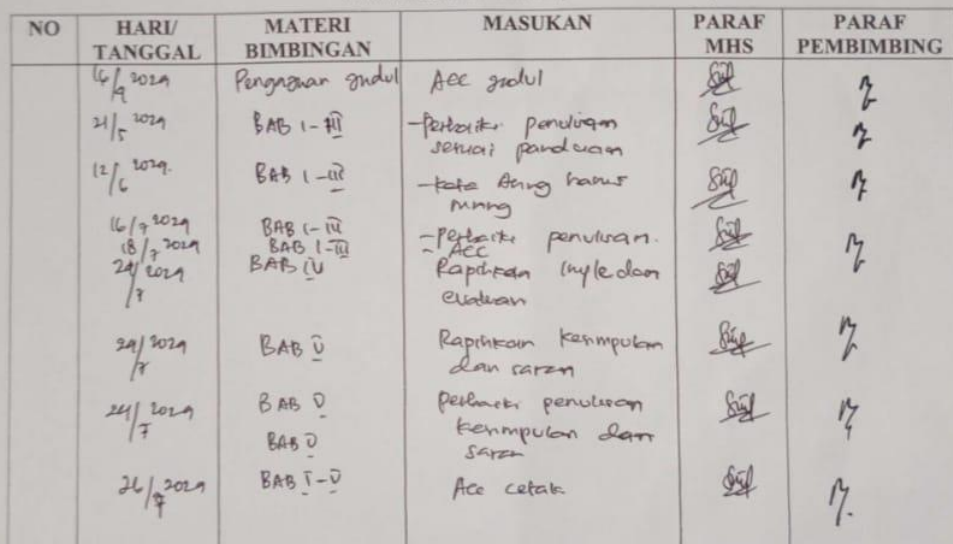 NO HARI/ TANGGAL MATERI BIMBINGAN MASUKAN PARAF MHS PARAF PEMBIMBING
2024 Pengajuan Judul Acc Judul
21/5 2024 BAB I-III -Perbaiki penulisan
sesuai panduan
12/6 2024. BAB I-III -kata Asing harus
miring
16/7 2024 BAB I-III -Perbaiki penulisan.
18/7 2024 BAB I-III - ACC
24/7 2024 BAB IV Rapihkan dan
24/7 2024 BAB V Rapihkan kesimpulan
dan saran
24/7 2024 BAB V perbaiki penulisan
BAB V kesimpulan dan
saran
26/7 2024 BAB I-V Acc cetak